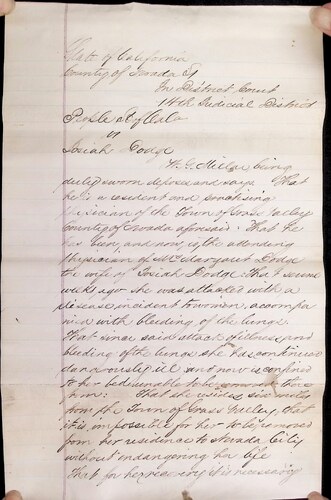 State of California
County of Nevada
In District Court
14th Judicial District
People of Cala
vs
Josiah Dodge
W. G. Millar being
duly sworn deposes and says That
he is a resident and practising
Physician of the Town of Grass Valley
County of Nevada aforesaid. That he
has been, and now is, the attending
Physician of Mrs Margaret Dodge
the wife of Josiah Dodge. That some
weeks ago she was attacked with a
disease incident to woman, accompa
nied with bleeding of the lungs.
That since said attack of illness and
bleeding of the lungs she has continued
dangerously ill and now is confined
to her bed unable to be removed there
from: That she resides six miles
from the Town of Grass Valley, that
it is impossible for her to be removed
from her residence to Nevada City
without endangering her life
That for her recovery it is necessary